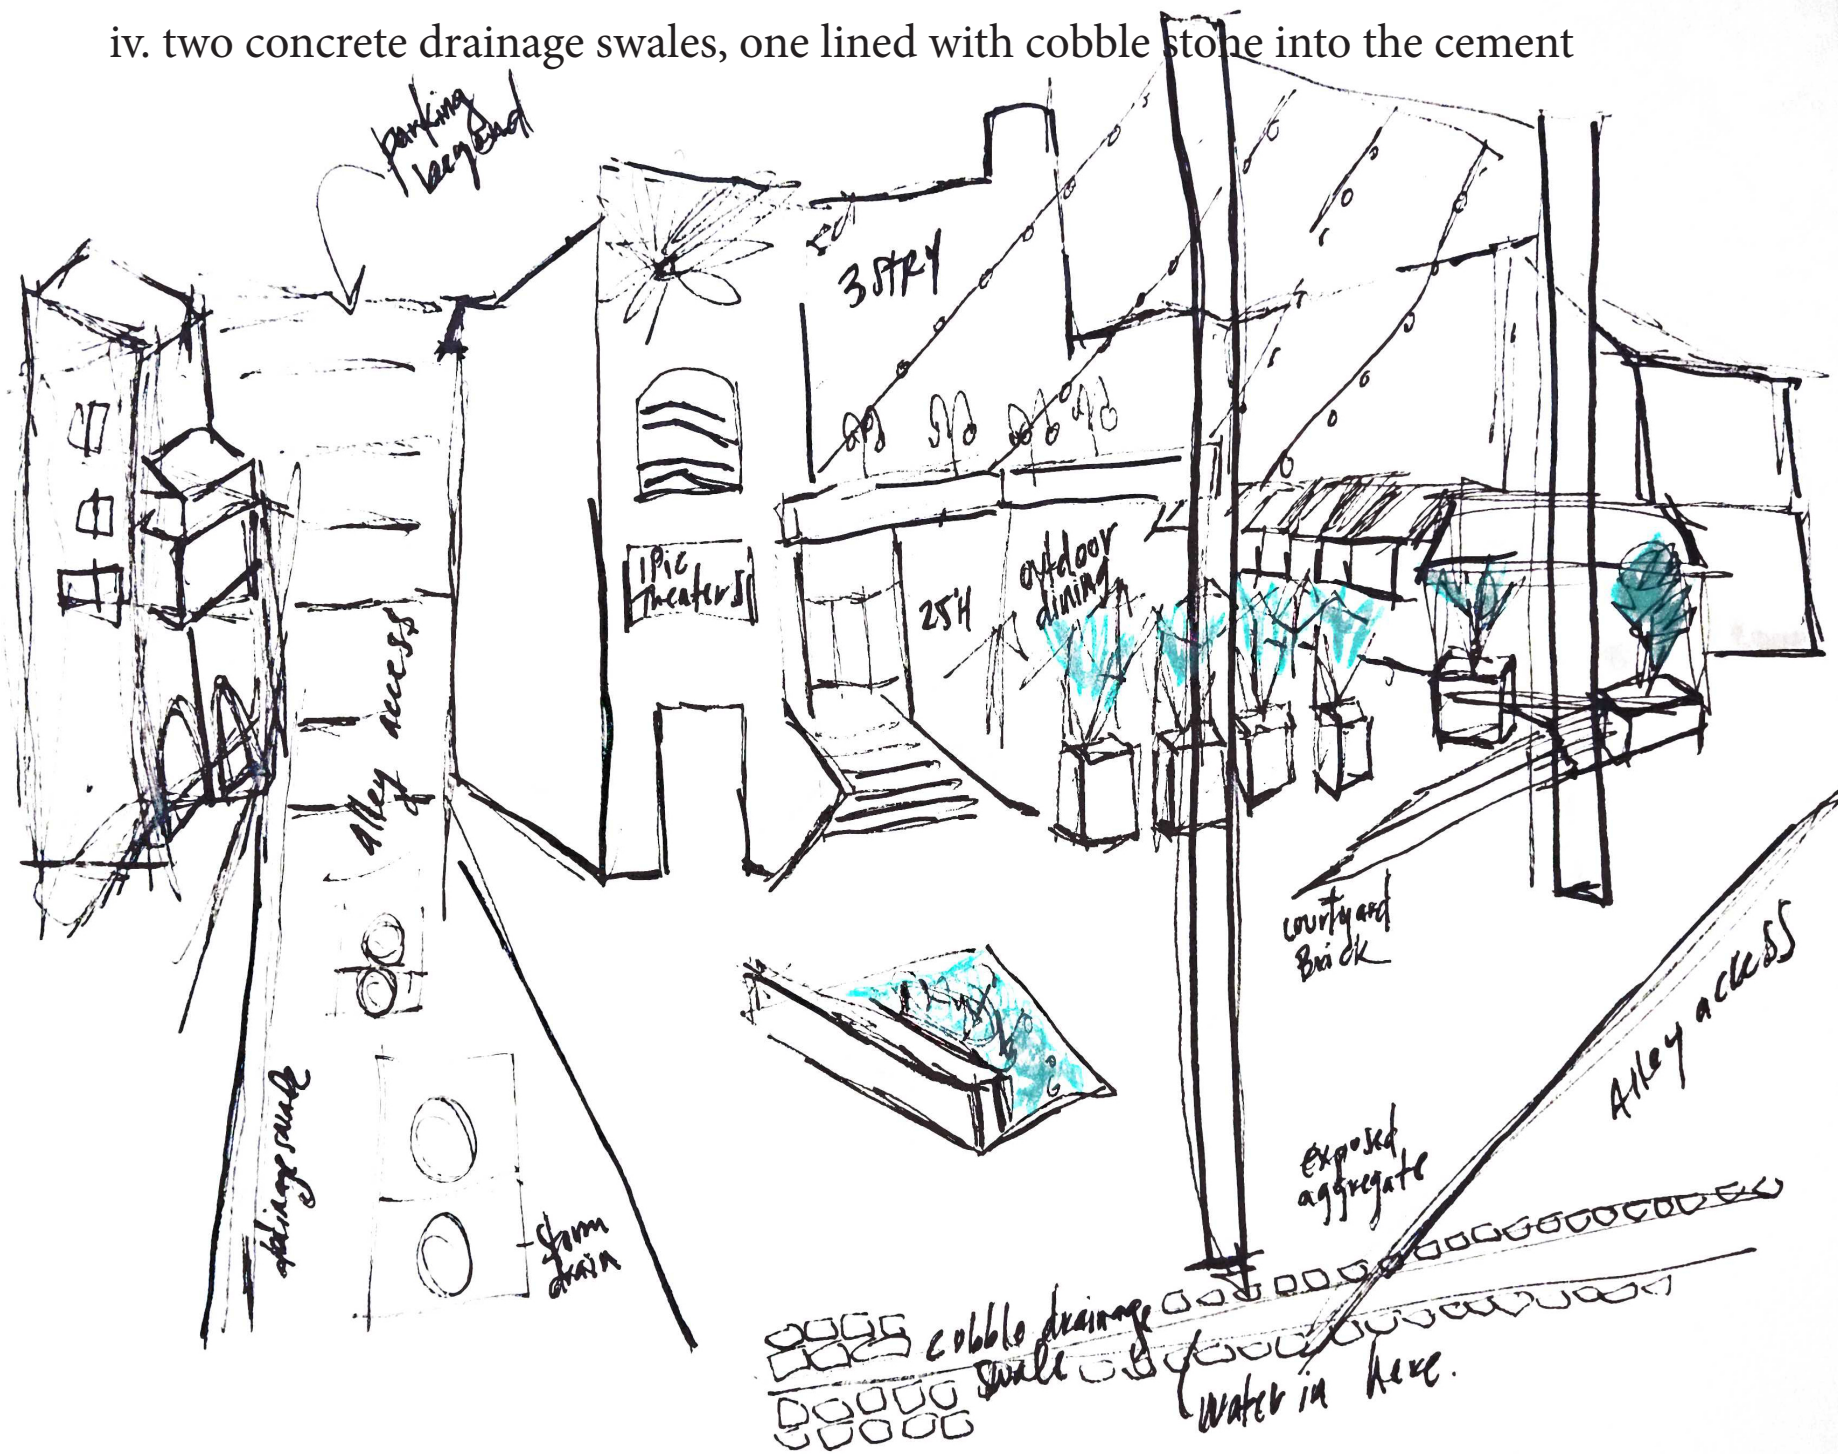 iv. two concrete drainage swales, one lined with cobble stone into the cement
parking
beyond
3 STRY
iPic
Theaters
25'H
outdoor
dining
alley access
courtyard
Brick
Alley access
exposed
aggregate
drainage swale
storm
drain
cobble drainage
swale
water in here.